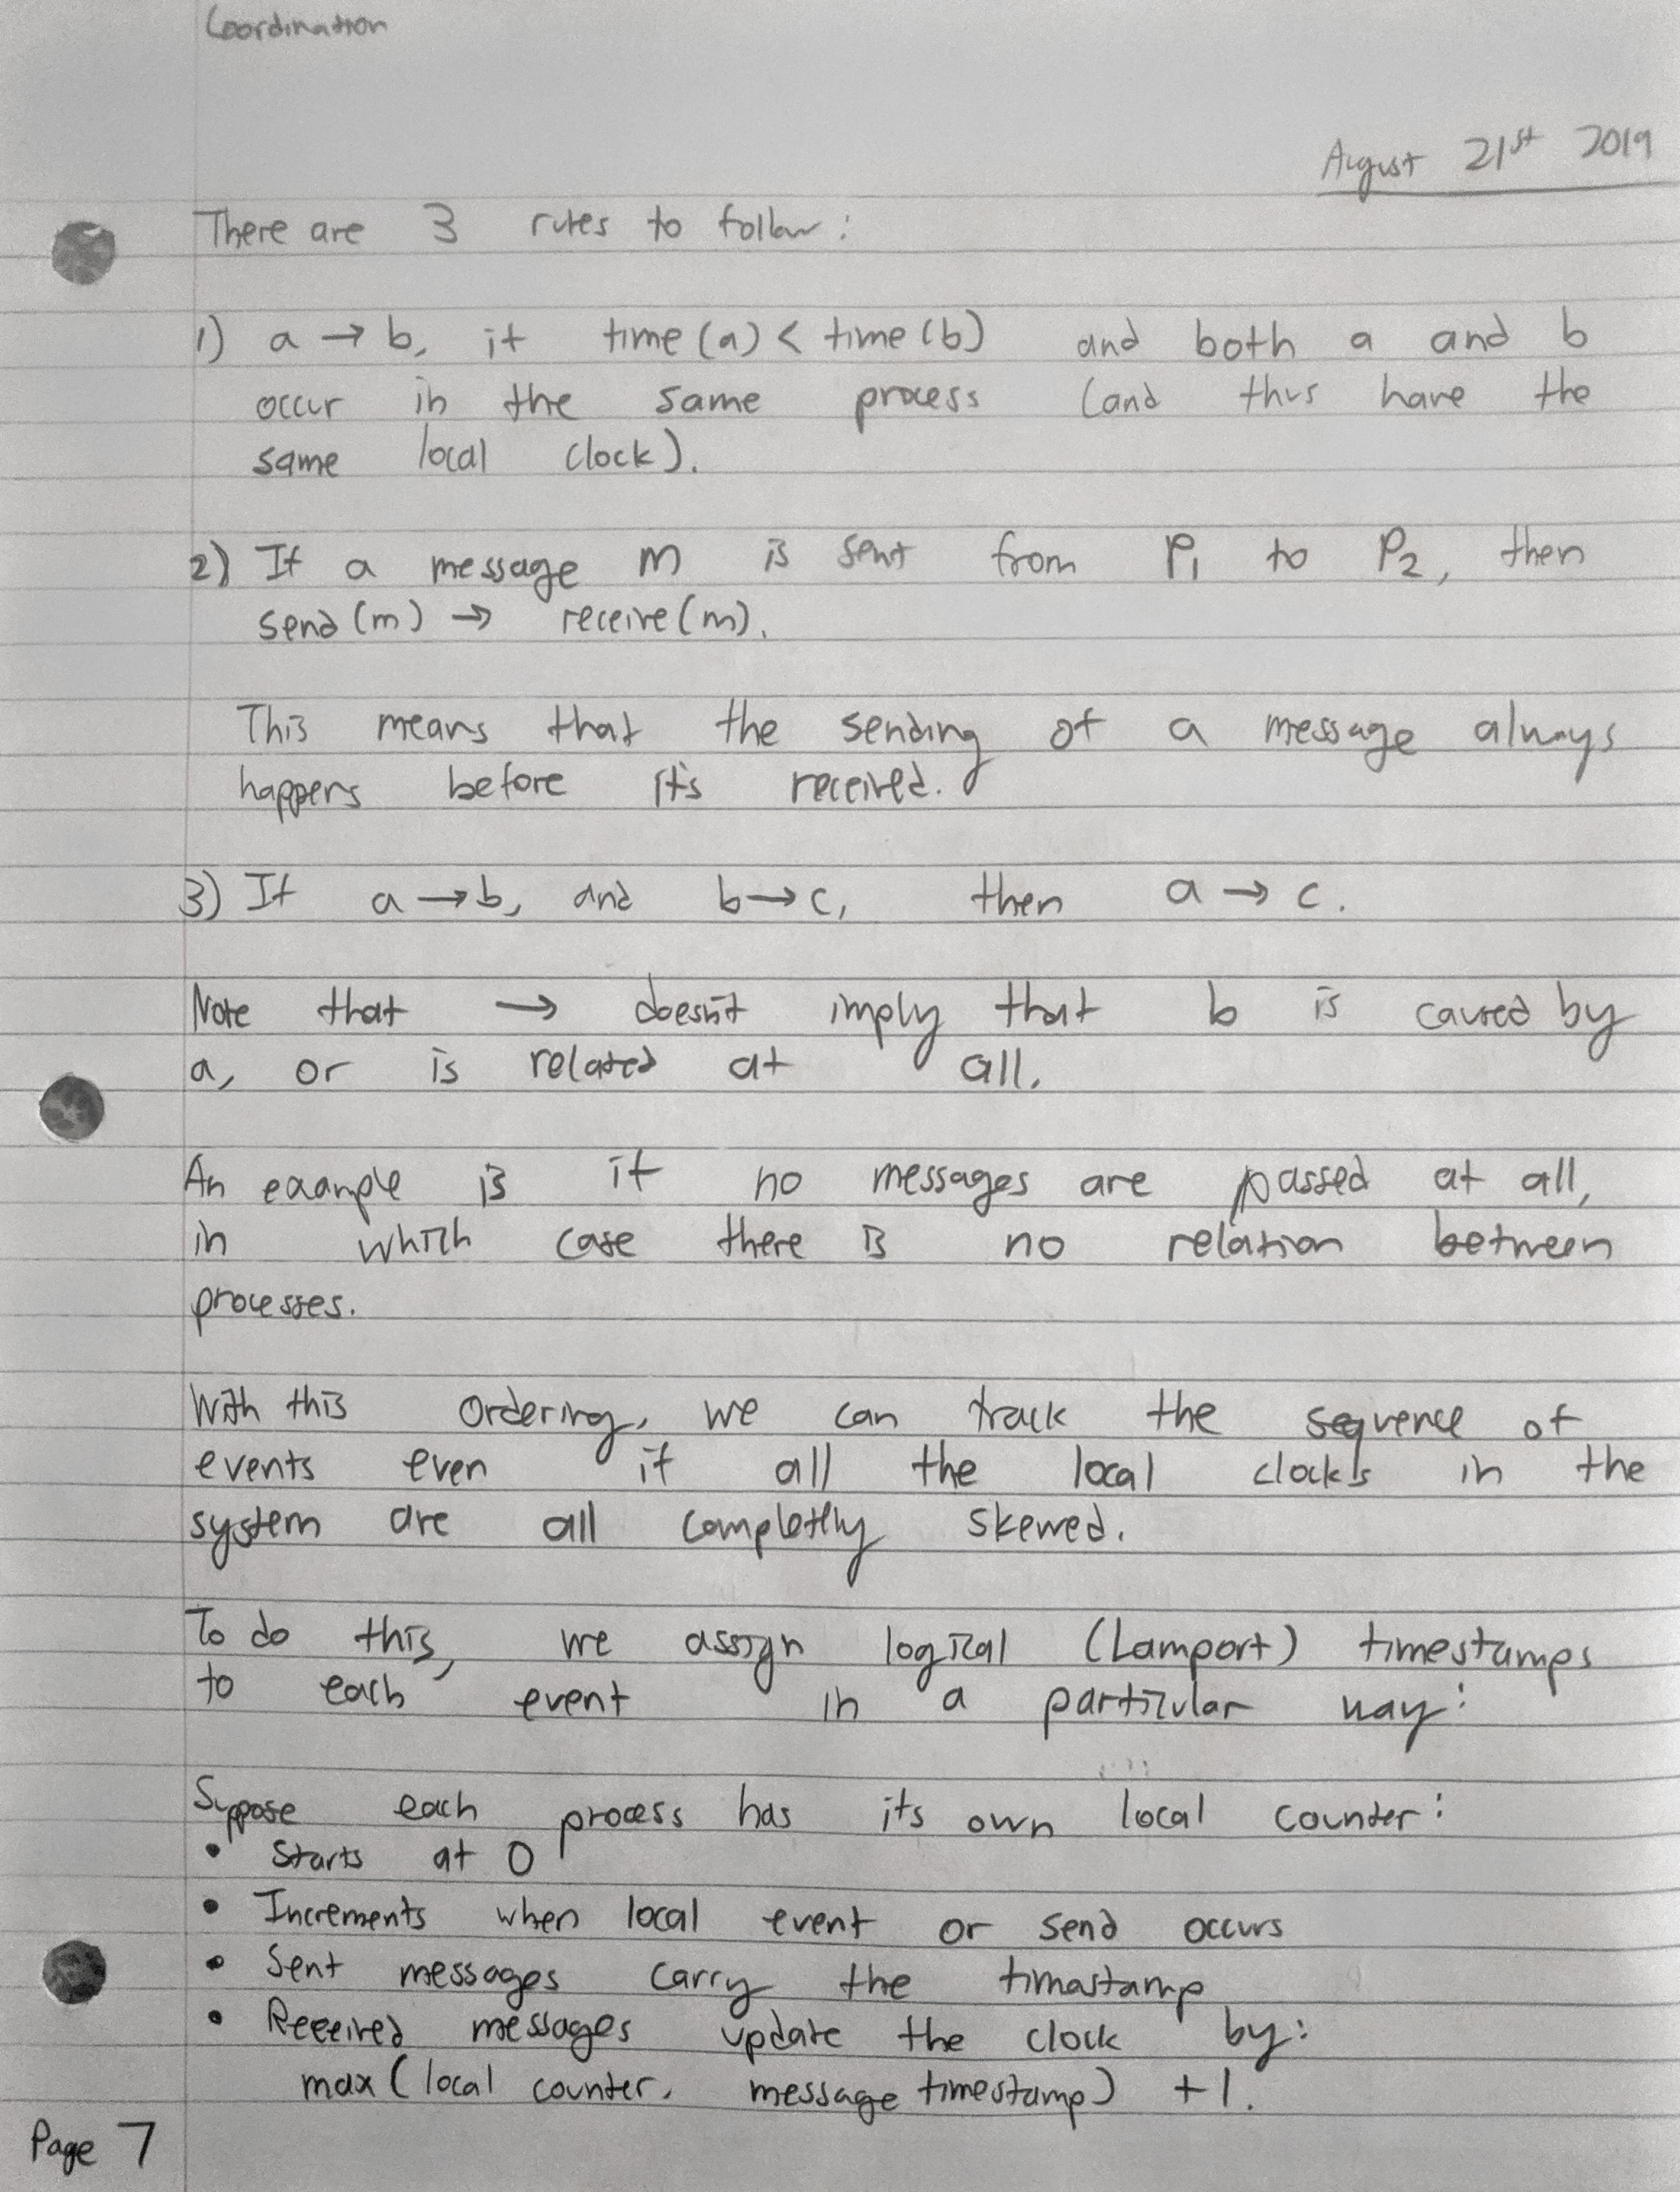 Coordination
August 21st 2019
There are 3 rules to follow:
1) a → b, if time(a) < time(b) and both a and b
occur in the same process (and thus have the
same local clock).
2) If a message m is sent from P1 to P2, then
send(m) → receive(m).
This means that the sending of a message always
happens before it's received.
3) If a → b, and b → c, then a → c.
Note that → doesn't imply that b is caused by
a, or is related at all.
An example is if no messages are passed at all,
in which case there is no relation between
processes.
With this ordering, we can track the sequence of
events even if all the local clocks in the
system are all completly skewed.
To do this, we assign logical (Lamport) timestamps
to each event in a particular way:
Suppose each process has its own local counter:
• Starts at 0
• Increments when local event or send occurs
• Sent messages carry the timastamp
• Received messages update the clock by:
max(local counter, message timestamp) +1.
Page 7